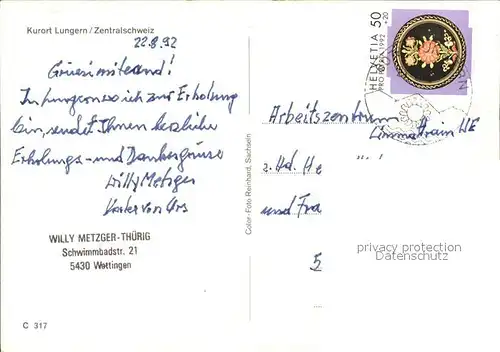 Kurort Lungern / Zentralschweiz
22.8.92
Grüezi miteand!
In Lungern wo ich zur Erholung
bin, sendet Ihnen herzliche
Erholungs- und Dankesgrüsse
Willy Metzger
Vater von Urs
WILLY METZGER-THÜRIG
Schwimmbadstr. 21
5430 Wettingen
C 317
Color-Foto Reinhard, Sachseln
HELVETIA 50
+20
PRO PATRIA 1992
Arbeitszentrum
z.Hd. He
und Fra
5
privacy protection
Datenschutz